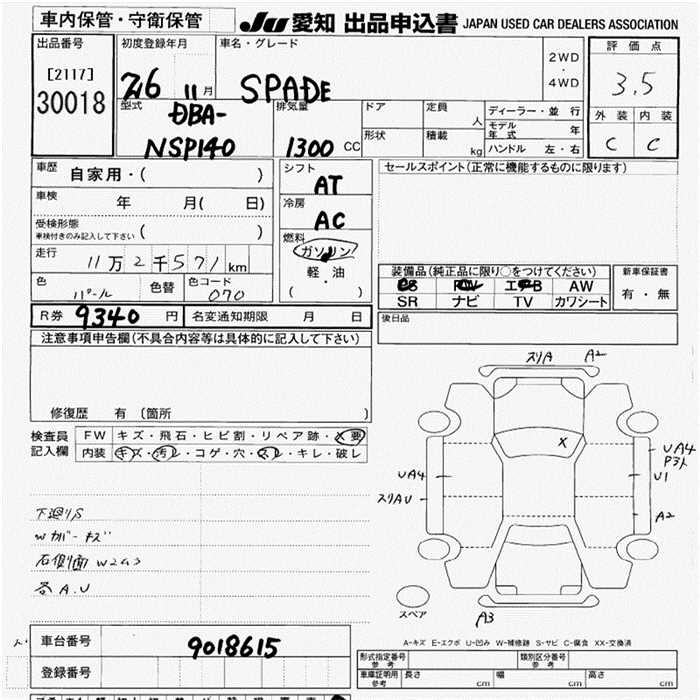 車内保管・守衛保管
JU 愛知 出品申込書 JAPAN USED CAR DEALERS ASSOCIATION
出品番号
[2117]
30018
初度登録年月
26 11 月
車名・グレード
SPADE
2WD
・
4WD
評 価 点
3.5
外 装 内 装
C C
型式
DBA-
NSP140
排気量
1300 CC
ドア
定員
人
形状
積載
kg
ディーラー・並 行
モデル
年 式
年
ハンドル 左・右
車歴
自家用・( )
車検
年 月( 日)
受検形態
車検付きのみ記入して下さい ( )
走行
11万2千571 km
色
パール
色替
色コード
070
シフト
AT
冷房
AC
燃料
ガソリン
軽・油
( )
セールスポイント(正常に機能するものに限ります)
装備品(純正品に限り○をつけてください)
AW
SR ナビ TV カワシート
新車保証書
有・無
R券 9340 円
名変通知期限 月 日
後日品
注意事項申告欄(不具合内容等は具体的に記入して下さい)
修復歴 有 (箇所 )
検査員
記入欄
FW キズ・飛石・ヒビ割・リペア跡・X要
内装 キズ・汚レ・コゲ・穴・スレ・キレ・破レ
下廻りS
Wガーキズ
右側面W2ムラ
各A.U
スリA A2
X
UA4
スリAU
UA4
U1
A2
A3
スペア
A-キズ E-エクボ U-凹み W-補修跡 S-サビ C-腐食 XX-交換済
車台番号
9018615
登録番号
形式指定番号
参 考
類別区分番号
参 考
車庫証明用
参考
長さ cm 幅 cm 高さ cm